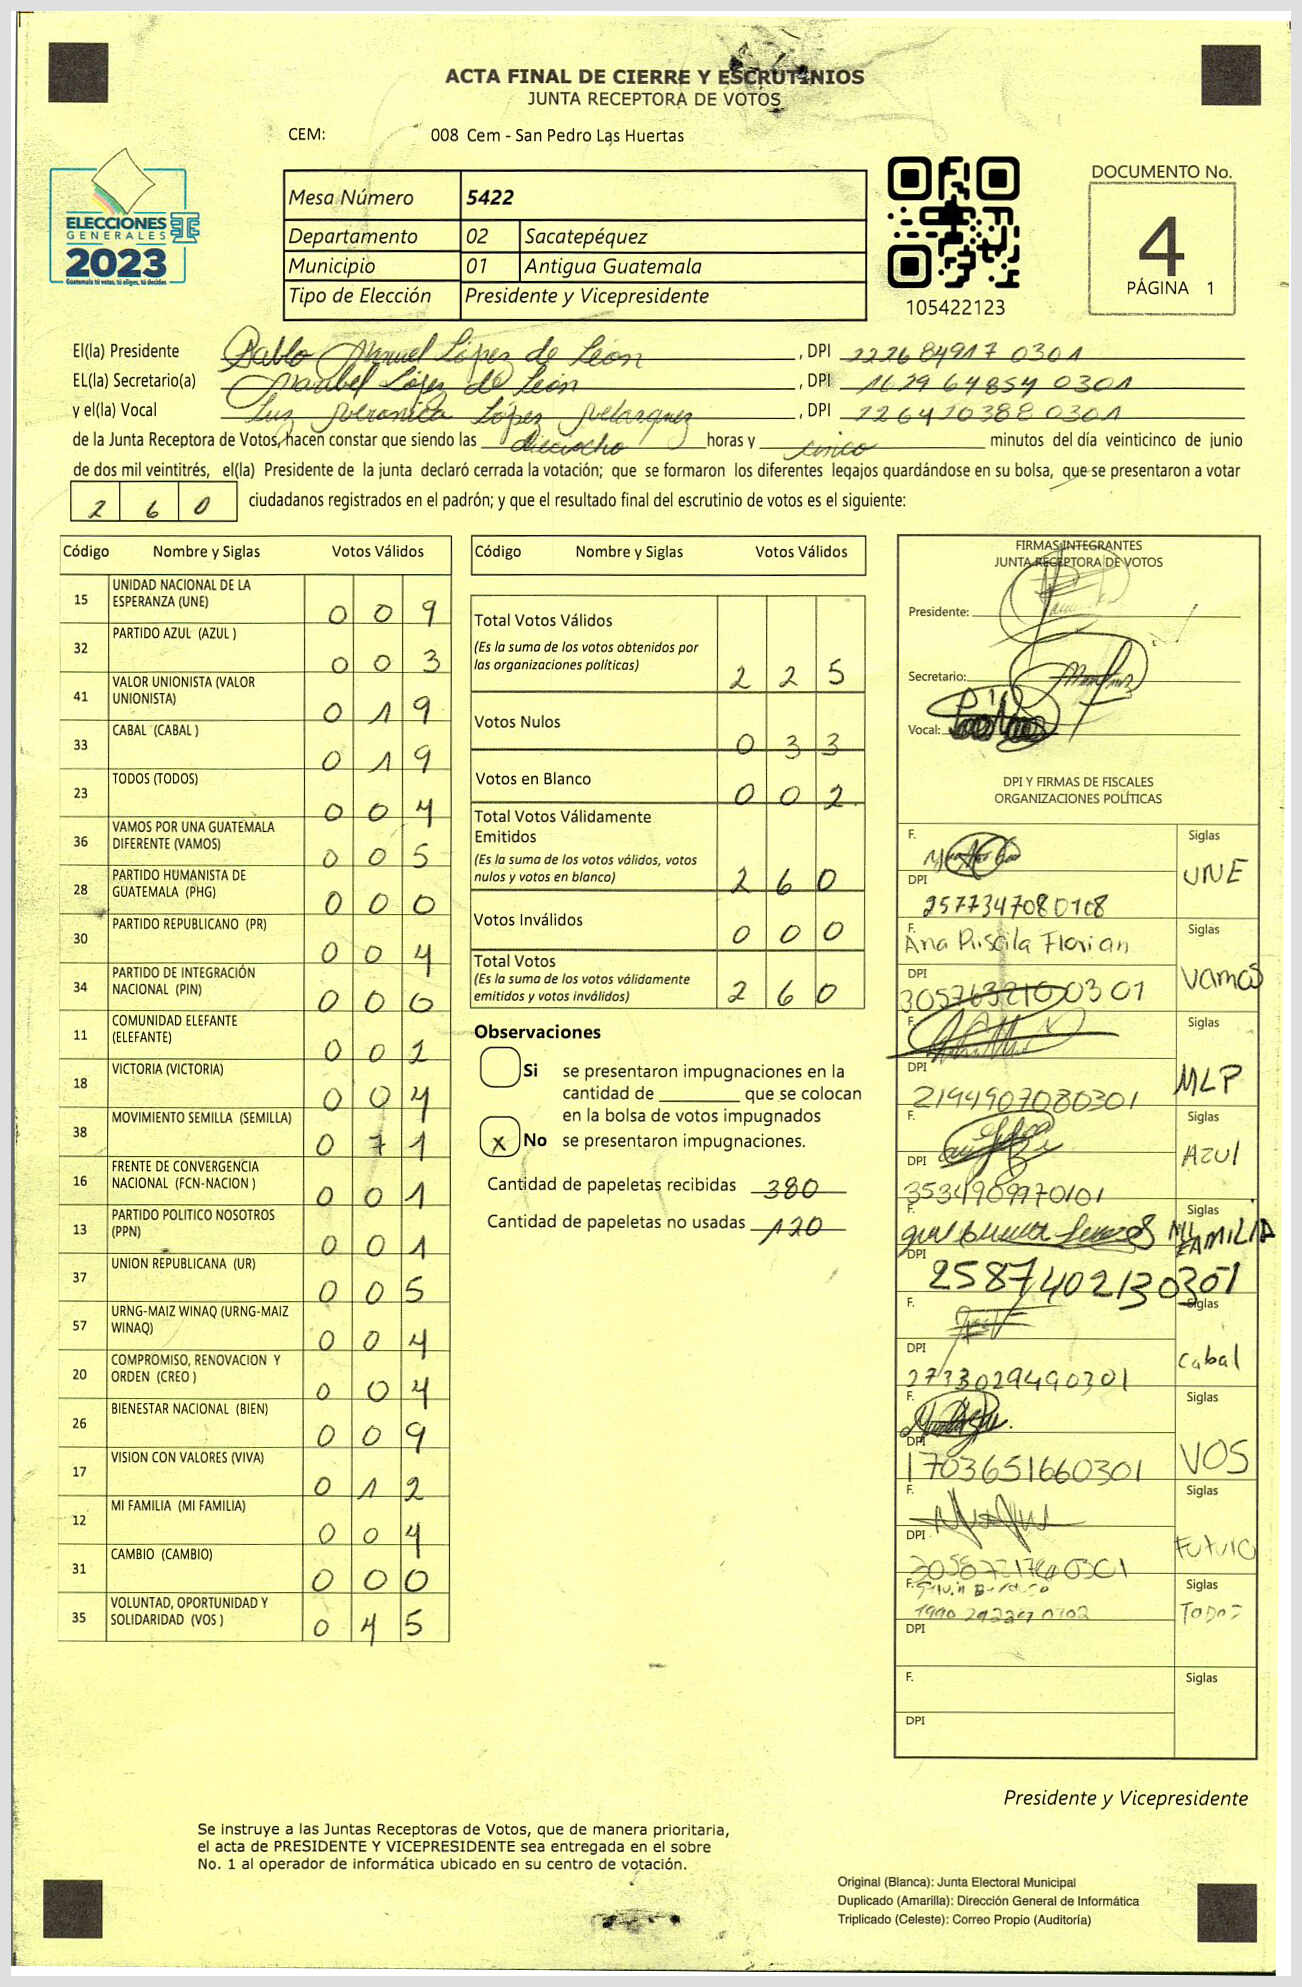 ACTA FINAL DE CIERRE Y ESCRUTINIOS
JUNTA RECEPTORA DE VOTOS
CEM: 008 Cem - San Pedro Las Huertas
ELECCIONES
GENERALES
2023
Guatemala tú votas, tú eliges, tú decides
Mesa Número 5422
Departamento 02 Sacatepéquez
Municipio 01 Antigua Guatemala
Tipo de Elección Presidente y Vicepresidente
105422123
DOCUMENTO No.
4
PÁGINA 1
El(la) Presidente Pablo Manuel López de León, DPI 222684917 0301
EL(la) Secretario(a) Marabel López de León, DPI 1629 64854 0301
y el(la) Vocal Luz Veronica López Velasquez, DPI 226410388 0301
de la Junta Receptora de Votos, hacen constar que siendo las dieciocho horas y cinco minutos del día veinticinco de junio
de dos mil veintitrés, el(la) Presidente de la junta declaró cerrada la votación; que se formaron los diferentes legajos guardándose en su bolsa, que se presentaron a votar
2 6 0 ciudadanos registrados en el padrón; y que el resultado final del escrutinio de votos es el siguiente:
Código Nombre y Siglas Votos Válidos
15 UNIDAD NACIONAL DE LA ESPERANZA (UNE) 0 0 9
32 PARTIDO AZUL (AZUL ) 0 0 3
41 VALOR UNIONISTA (VALOR UNIONISTA) 0 1 9
33 CABAL (CABAL ) 0 1 9
23 TODOS (TODOS) 0 0 4
36 VAMOS POR UNA GUATEMALA DIFERENTE (VAMOS) 0 0 5
28 PARTIDO HUMANISTA DE GUATEMALA (PHG) 0 0 0
30 PARTIDO REPUBLICANO (PR) 0 0 4
34 PARTIDO DE INTEGRACIÓN NACIONAL (PIN) 0 0 0
11 COMUNIDAD ELEFANTE (ELEFANTE) 0 0 2
18 VICTORIA (VICTORIA) 0 0 4
38 MOVIMIENTO SEMILLA (SEMILLA) 0 7 1
16 FRENTE DE CONVERGENCIA NACIONAL (FCN-NACION ) 0 0 1
13 PARTIDO POLITICO NOSOTROS (PPN) 0 0 1
37 UNION REPUBLICANA (UR) 0 0 5
57 URNG-MAIZ WINAQ (URNG-MAIZ WINAQ) 0 0 4
20 COMPROMISO, RENOVACION Y ORDEN (CREO ) 0 0 4
26 BIENESTAR NACIONAL (BIEN) 0 0 9
17 VISION CON VALORES (VIVA) 0 1 2
12 MI FAMILIA (MI FAMILIA) 0 0 4
31 CAMBIO (CAMBIO) 0 0 0
35 VOLUNTAD, OPORTUNIDAD Y SOLIDARIDAD (VOS ) 0 4 5
Código Nombre y Siglas Votos Válidos
Total Votos Válidos
(Es la suma de los votos obtenidos por
las organizaciones políticas) 2 2 5
Votos Nulos 0 3 3
Votos en Blanco 0 0 2
Total Votos Válidamente
Emitidos
(Es la suma de los votos válidos, votos
nulos y votos en blanco) 2 6 0
Votos Inválidos 0 0 0
Total Votos
(Es la suma de los votos válidamente
emitidos y votos inválidos) 2 6 0
Observaciones
Si se presentaron impugnaciones en la
cantidad de ________ que se colocan
en la bolsa de votos impugnados
x No se presentaron impugnaciones.
Cantidad de papeletas recibidas 380
Cantidad de papeletas no usadas 120
FIRMAS INTEGRANTES
JUNTA RECEPTORA DE VOTOS
Presidente:
Secretario:
Vocal:
DPI Y FIRMAS DE FISCALES
ORGANIZACIONES POLÍTICAS
F. Siglas UNE
DPI 2577347080108
F. Ana Priscila Florian Siglas Vamos
DPI 3057632100301
F. Siglas MLP
DPI 2194907080301
F. Siglas Azul
DPI 3534909970101
F. Siglas MI FAMILIA
DPI 2587402130301
F. Siglas Cabal
DPI 2733029490301
F. Siglas VOS
DPI 1703651660301
F. Siglas Futuro
DPI
F. Siglas Todos
DPI
F. Siglas
DPI
Presidente y Vicepresidente
Se instruye a las Juntas Receptoras de Votos, que de manera prioritaria,
el acta de PRESIDENTE Y VICEPRESIDENTE sea entregada en el sobre
No. 1 al operador de informática ubicado en su centro de votación.
Original (Blanca): Junta Electoral Municipal
Duplicado (Amarilla): Dirección General de Informática
Triplicado (Celeste): Correo Propio (Auditoría)